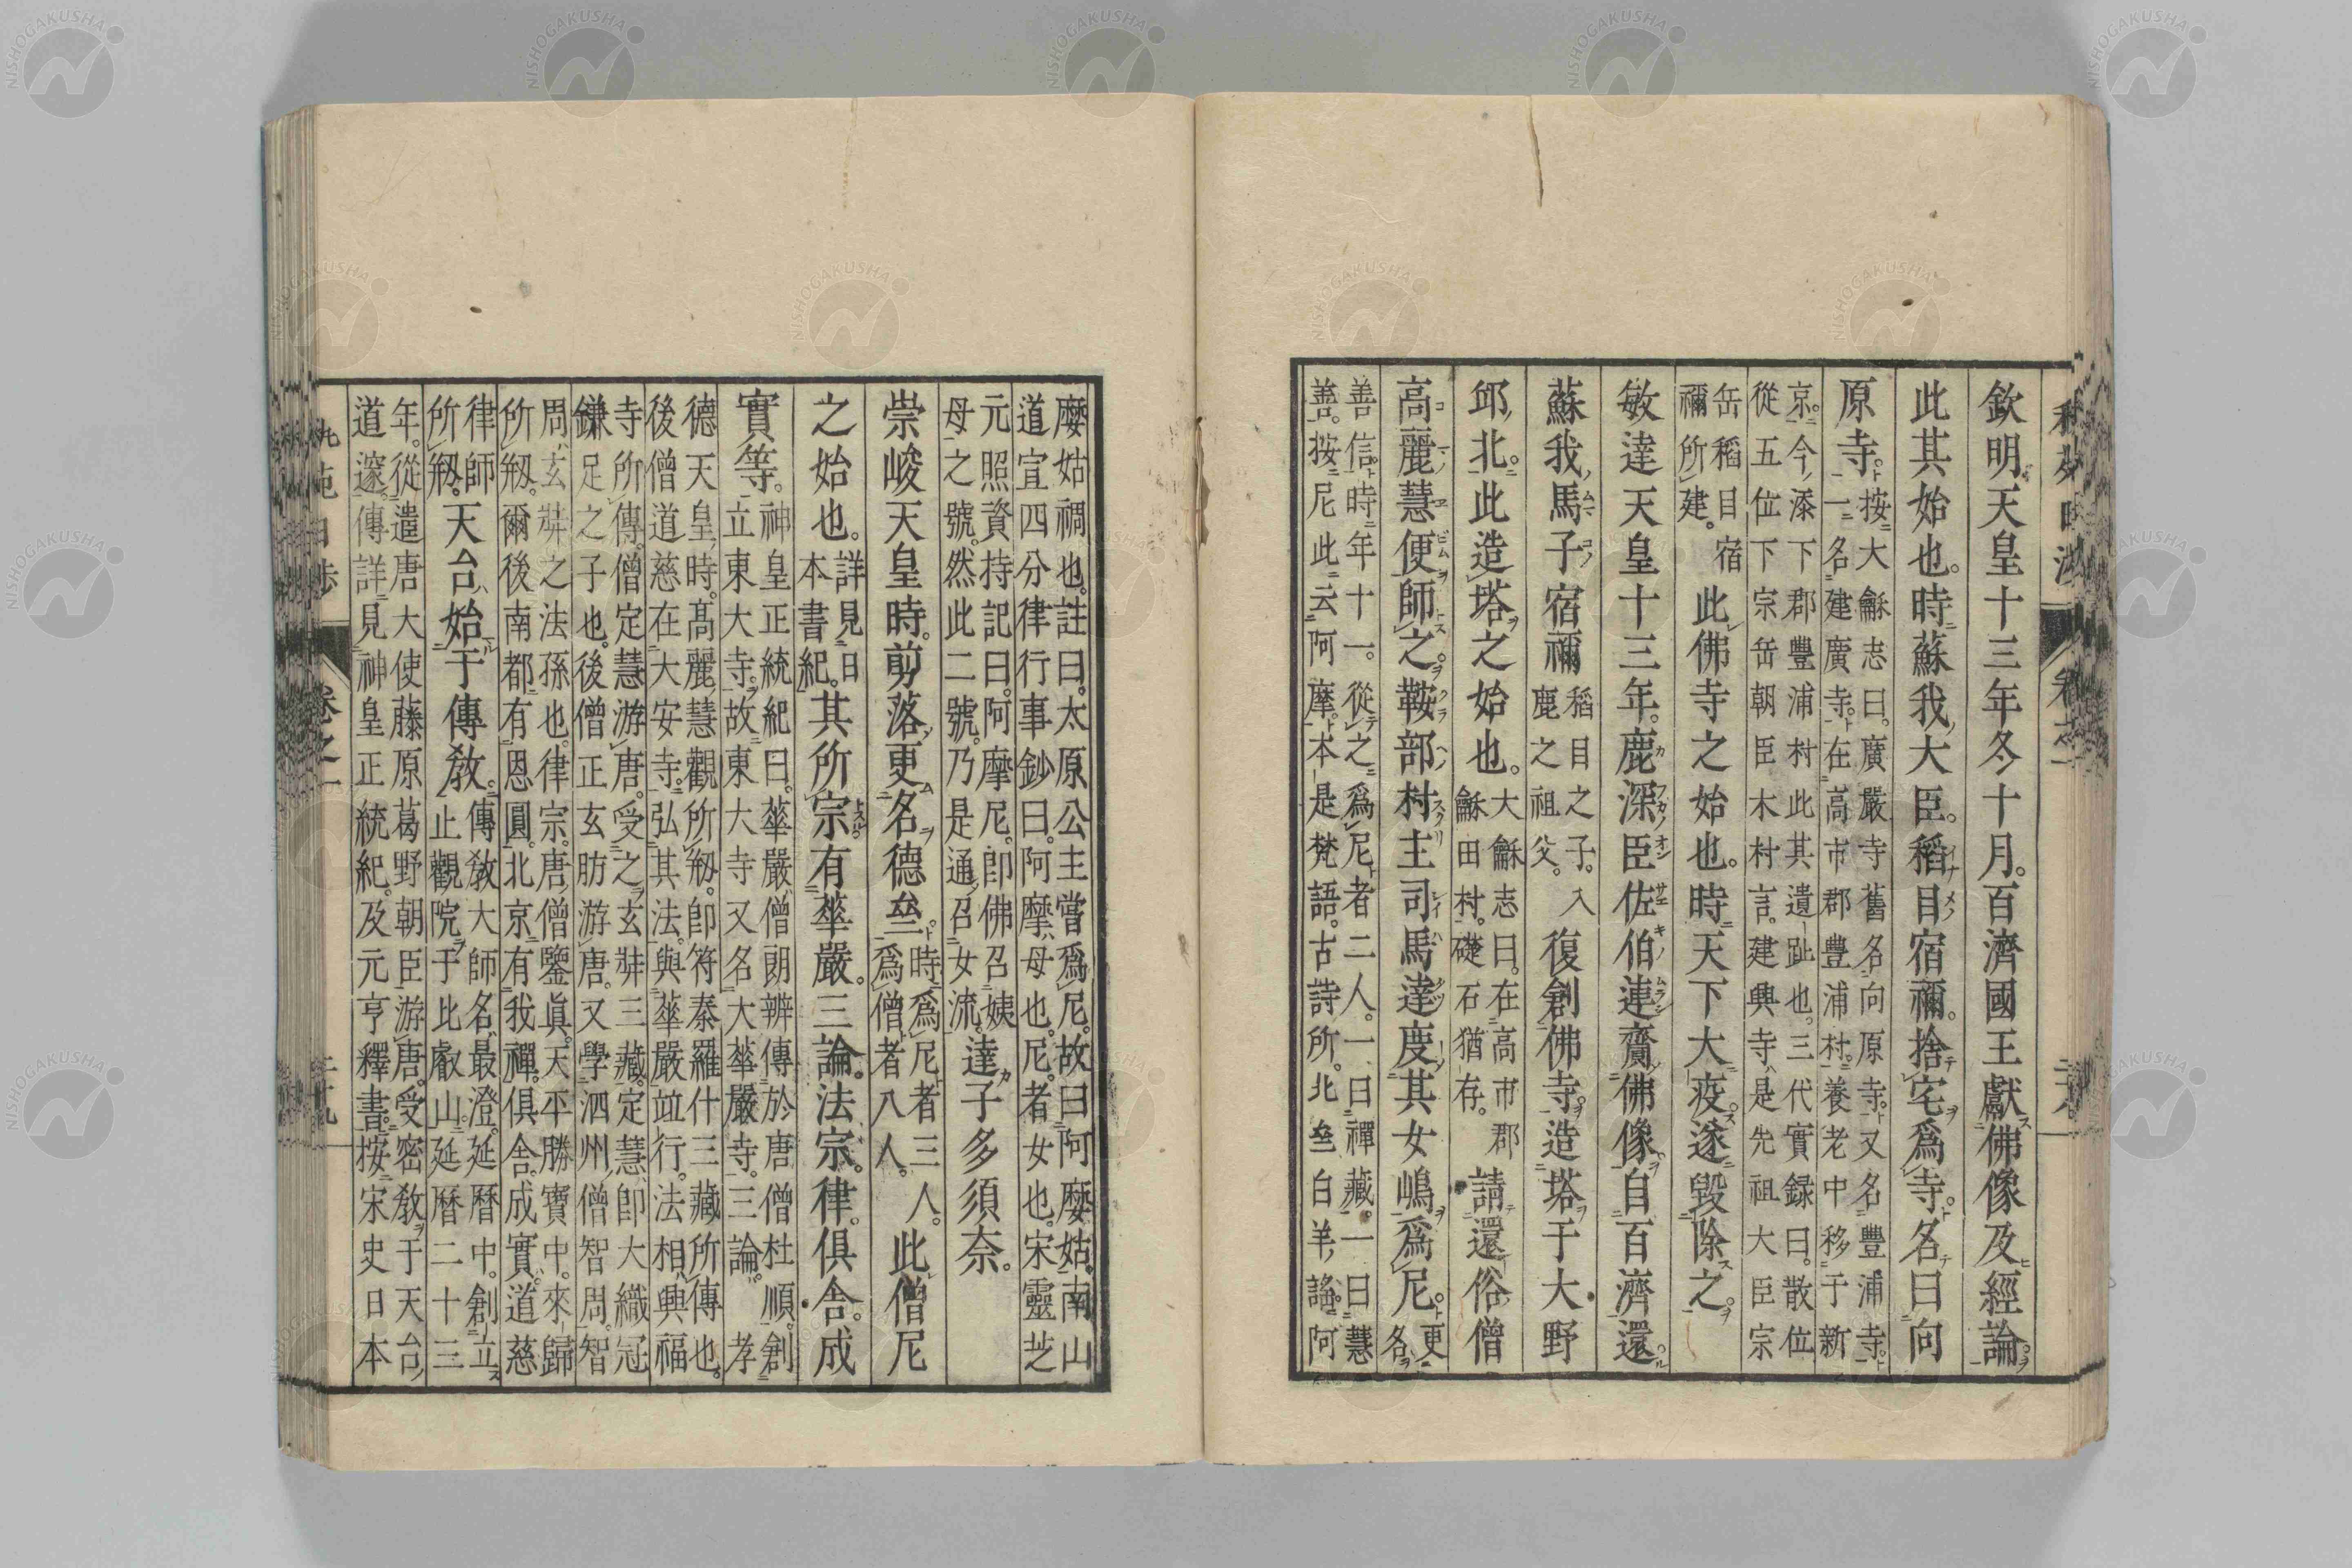 欽明天皇十三年冬十月。百濟國王獻佛像及經論。
此其始也。時蘇我大臣。稻目宿禰。捨宅爲寺。名曰向
原寺。
按大龢志曰。廣嚴寺舊名向原寺。又名豐浦寺。
一名建廣寺。在高市郡豐浦村。養老中移于新
京。今添下郡豐浦村此其遺趾也。三代實録曰。散位
從五位下宗岳朝臣木村言。建興寺是先祖大臣宗
岳稻目宿
禰所建。
此佛寺之始也。時天下大疫。遂毀除之。
敏達天皇十三年。鹿深臣佐伯連齎佛像。自百濟還
蘇我馬子宿禰
稻目之子。入
鹿之祖父。
復創佛寺。造塔于大野
邱北。此造塔之始也。
大龢志曰。在高市郡
龢田村。礎石猶存。
請還俗僧
高麗慧便師之。鞍部村主司馬達度其女嶋爲尼。
更
名
善信。時年十一。從之爲尼者二人。一曰禪藏。一曰慧
善。按尼此云阿摩。本是梵語。古詩所。北叁白羊謠阿
麼姑裯也。註曰。太原公主嘗爲尼。故曰阿麼姑。南山
道宣四分律行事鈔曰。阿摩母也。尼者女也。宋靈芝
元照資持記曰。阿摩尼。卽佛召姨
母之號。然此二號。乃是通召女流。
達子多須奈。
崇峻天皇時。剪落更名德叁。
時爲尼者三人。
爲僧者八人。
此僧尼
之始也。
詳見日
本書紀。
其所宗有蕐嚴。三論。法宗。律。俱舍。成
實等。
神皇正統紀曰。蕐嚴僧朗辨傳於唐僧杜順。創
立東大寺。故東大寺又名大蕐嚴寺。三論。孝
德天皇時。高麗慧觀所剏。卽符秦羅什三藏所傳也。
後僧道慈在大安寺。弘其法。與蕐嚴竝行。法相興福
寺所傳。僧定慧游唐。受之玄奘三藏。定慧卽大織冠
鎌足之子也。後僧正玄肪游唐。又學泗州僧智周。智
周玄奘之法孫也。律宗。唐僧鑒眞。天平勝寶中。來歸
所剏。爾後南都有恩圓。北京有我禪。俱舍。成實。道慈
律師
所剏。
天台始于傳敎。
傳敎大師名最澄。延曆中。創立
止觀院于比叡山。延曆二十三
年。從遣唐大使藤原葛野朝臣游唐。受密敎于天台
道邃。傳詳見神皇正統紀。及元亨釋書。按宋史日本
卷之一